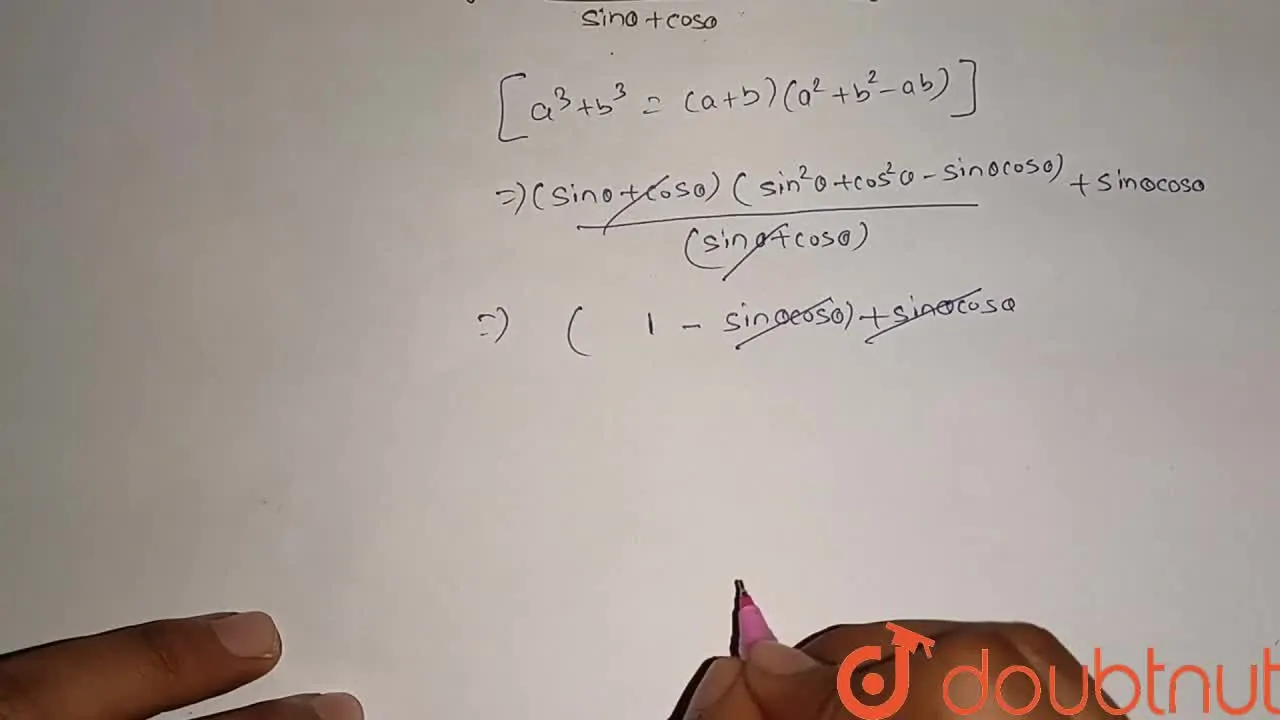 sinθ+cosθ
[a³+b³ = (a+b)(a²+b²-ab)]
=) (sinθ+cosθ) (sin²θ+cos²θ-sinθcosθ) + sinθcosθ
(sinθ+cosθ)
=) ( 1 - sinθcosθ)+sinθcosθ
doubtnut